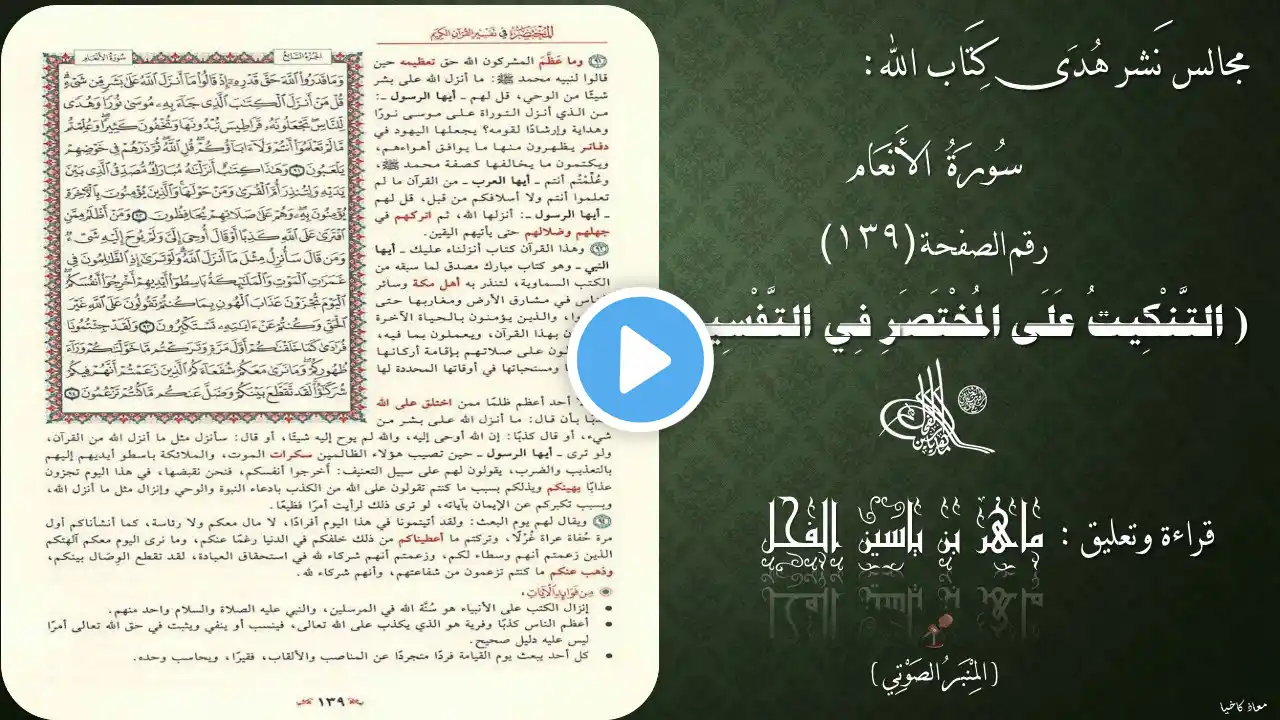 مجالس نَشر هُدَى كِتَاب الله:
سُورَةُ الأَنعَام
رقم الصفحة (١٣٩)
( التَّنْكِيتُ عَلَى المُخْتَصَرِ فِي التَّفْسِي
قراءة وتعليق : ماهر بن ياسين الفحل
(المِنْبَرُ الصَّوْتِي)
معاذ كاخيا
المختصر في تفسير القرآن الكريم
سورة الأنعام
الجزء السابع
وَمَا قَدَرُوا۟ ٱللَّهَ حَقَّ قَدْرِهِۦٓ إِذْ قَالُوا۟ مَآ أَنزَلَ ٱللَّهُ عَلَىٰ بَشَرٍ مِّن شَىْءٍ ۗ
قُلْ مَنْ أَنزَلَ ٱلْكِتَٰبَ ٱلَّذِى جَآءَ بِهِۦ مُوسَىٰ نُورًا وَهُدًى
لِّلنَّاسِ ۖ تَجْعَلُونَهُۥ قَرَاطِيسَ تُبْدُونَهَا وَتُخْفُونَ كَثِيرًا ۖ وَعُلِّمْتُم
مَّا لَمْ تَعْلَمُوٓا۟ أَنتُمْ وَلَآ ءَابَآؤُكُمْ ۖ قُلِ ٱللَّهُ ۖ ثُمَّ ذَرْهُمْ فِى خَوْضِهِمْ
يَلْعَبُونَ ٩١ وَهَٰذَا كِتَٰبٌ أَنزَلْنَٰهُ مُبَارَكٌ مُّصَدِّقُ ٱلَّذِى بَيْنَ
يَدَيْهِ وَلِتُنذِرَ أُمَّ ٱلْقُرَىٰ وَمَنْ حَوْلَهَا ۚ وَٱلَّذِينَ يُؤْمِنُونَ بِٱلْءَاخِرَةِ
يُؤْمِنُونَ بِهِۦ ۖ وَهُمْ عَلَىٰ صَلَاتِهِمْ يُحَافِظُونَ ٩٢ وَمَنْ أَظْلَمُ مِمَّنِ
ٱفْتَرَىٰ عَلَى ٱللَّهِ كَذِبًا أَوْ قَالَ أُوحِىَ إِلَىَّ وَلَمْ يُوحَ إِلَيْهِ شَىْءٌ
وَمَن قَالَ سَأُنزِلُ مِثْلَ مَآ أَنزَلَ ٱللَّهُ ۗ وَلَوْ تَرَىٰٓ إِذِ ٱلظَّٰلِمُونَ فِى
غَمَرَٰتِ ٱلْمَوْتِ وَٱلْمَلَٰٓئِكَةُ بَاسِطُوٓا۟ أَيْدِيهِمْ أَخْرِجُوٓا۟ أَنفُسَكُمُ ۖ
ٱلْيَوْمَ تُجْزَوْنَ عَذَابَ ٱلْهُونِ بِمَا كُنتُمْ تَقُولُونَ عَلَى ٱللَّهِ غَيْرَ
ٱلْحَقِّ وَكُنتُمْ عَنْ ءَايَٰتِهِۦ تَسْتَكْبِرُونَ ٩٣ وَلَقَدْ جِئْتُمُونَا
فُرَٰدَىٰ كَمَا خَلَقْنَٰكُمْ أَوَّلَ مَرَّةٍ وَتَرَكْتُم مَّا خَوَّلْنَٰكُمْ وَرَآءَ
ظُهُورِكُمْ ۖ وَمَا نَرَىٰ مَعَكُمْ شُفَعَآءَكُمُ ٱلَّذِينَ زَعَمْتُمْ أَنَّهُمْ فِيكُمْ
شُرَكَٰٓؤُا۟ ۚ لَقَد تَّقَطَّعَ بَيْنَكُمْ وَضَلَّ عَنكُم مَّا كُنتُمْ تَزْعُمُونَ ٩٤
٩١ وما عَظَّمَ المشركون الله حق تعظيمه حين
قالوا لنبيه محمد ﷺ: ما أنزل الله على بشر
شيئًا من الوحي، قل لهم ـ أيها الرسول ـ:
من الذي أنزل التوراة على موسى نورًا
وهداية وإرشادًا لقومه؟ يجعلها اليهود في
دفاتر يظهرون منها ما يوافق أهواءهم،
ويكتمون ما يخالفها كصفة محمد ﷺ،
وعُلِّمْتُم أنتم ـ أيها العرب ـ من القرآن ما لم
تعلموا أنتم ولا أسلافكم من قبل، قل لهم
ـ أيها الرسول ـ: أنزلها الله، ثم اتركهم في
جهلهم وضلالهم حتى يأتيهم اليقين.
٩٢ وهذا القرآن كتاب أنزلناه عليك ـ أيها
النبي ـ وهو كتاب مبارك مصدق لما سبقه من
الكتب السماوية، لتنذر به أهل مكة وسائر
الناس في مشارق الأرض ومغاربها حتى
ا، والذين يؤمنون بالحياة الآخرة
ون بهذا القرآن، ويعملون بما فيه،
ون على صلاتهم بإقامة أركانها
ا ومستحباتها في أوقاتها المحددة لها
أحد أعظم ظلمًا ممن اختلق على الله
بأن قال: ما أنزل الله على بشر من
شيء، أو قال كذبًا: إن الله أوحى إليه، والله لم يوح إليه شيئًا، أو قال: سأنزل مثل ما أنزل الله من القرآن،
ولو ترى ـ أيها الرسول ـ حين تصيب هؤلاء الظالمين سكرات الموت، والملائكة باسطو أيديهم إليهم
بالتعذيب والضرب، يقولون لهم على سبيل التعنيف: أخرجوا أنفسكم، فنحن نقبضها، في هذا اليوم تجزون
عذابًا يهينكم ويذلكم بسبب ما كنتم تقولون على الله من الكذب بادعاء النبوة والوحي وإنزال مثل ما أنزل الله،
وبسبب تكبركم عن الإيمان بآياته، لو ترى ذلك لرأيت أمرًا فظيعًا.
٩٤ ويقال لهم يوم البعث: ولقد أتيتمونا في هذا اليوم أفرادًا، لا مال معكم ولا رئاسة، كما أنشأناكم أول
مرة حُفاة عراة غُرْلًا، وتركتم ما أعطيناكم من ذلك خلفكم في الدنيا رغمًا عنكم، وما نرى اليوم معكم آلهتكم
الذين زعمتم أنهم وسطاء لكم، وزعمتم أنهم شركاء لله في استحقاق العبادة، لقد تقطع الوصال بينكم،
وذهب عنكم ما كنتم تزعمون من شفاعتهم، وأنهم شركاء لله.
مِن فَوَائِدِ الآيَاتِ:
• إنزال الكتب على الأنبياء هو سُنَّة الله في المرسلين، والنبي عليه الصلاة والسلام واحد منهم.
• أعظم الناس كذبًا وفرية هو الذي يكذب على الله تعالى، فينسب أو ينفي ويثبت في حق الله تعالى أمرًا
ليس عليه دليل صحيح.
• كل أحد يبعث يوم القيامة فردًا متجردًا عن المناصب والألقاب، فقيرًا، ويحاسب وحده.
١٣٩